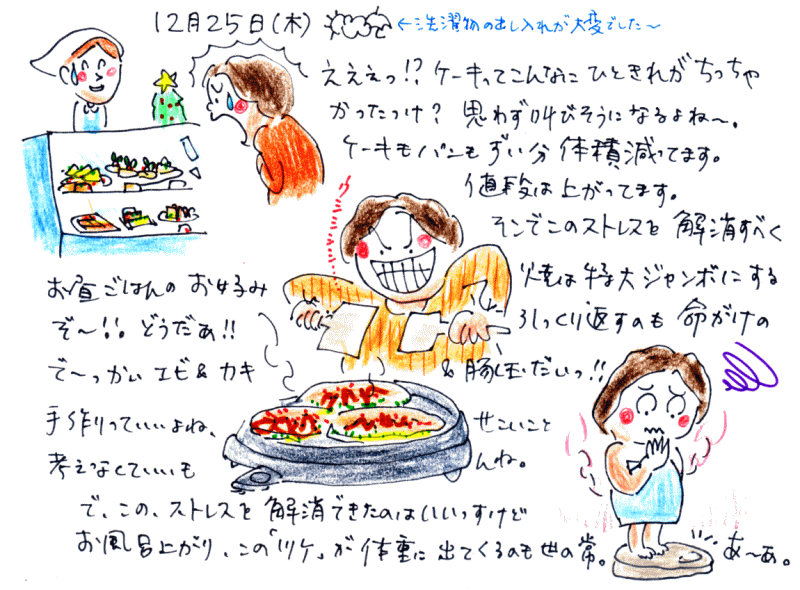 12月25日(木) ←洗濯物の出し入れが大変でした〜
えええっ!? ケーキってこんなにひときれがちっちゃ
かったっけ? 思わず叫びそうになるよね〜。
ケーキもパンもずい分体積減ってます。
値段は上がってます。
そンでこのストレスを解消すべく
お昼ごはんのお好み焼は特大ジャンボにする
ぞ〜!! どうだぁ!! ひっくり返すのも命がけの
で〜っかいエビ&カキ&豚玉だいっ!!
手作りっていいよね、せこいこと
考えなくていいもんね。
で、この、ストレスを解消できたのはいいっすけど
お風呂上がり、この「ツケ」が体重に出てくるのも世の常。 あ〜あ。